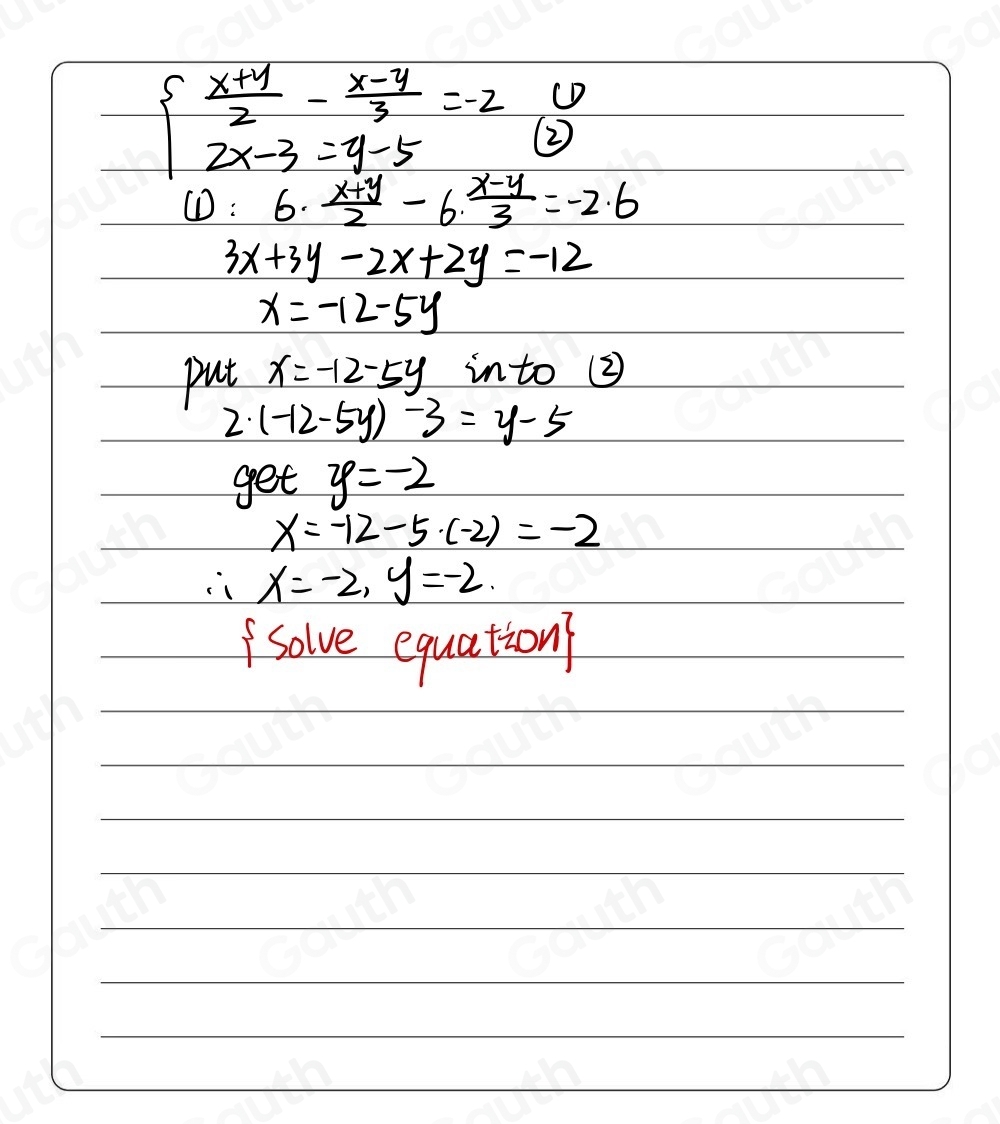 { (x+y)/2 - (x-y)/3 = -2 ①
2x-3 = y-5 ②
①: 6·(x+y)/2 - 6·(x-y)/3 = -2·6
3x+3y-2x+2y=-12
x=-12-5y
put x=-12-5y into ②
2·(-12-5y)-3=y-5
get y=-2
x=-12-5·(-2)=-2
∴ x=-2, y=-2.
{solve equation}
Gauth